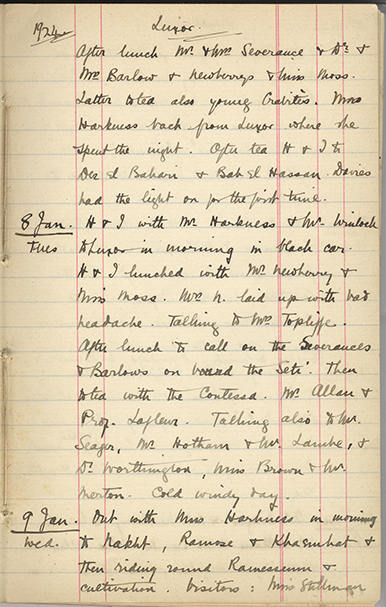 1924. Luxor.
After lunch Mr. & Mrs Severance & Dr. &
Mrs Barlow & Newberrys & Miss Moss.
Latter to tea also young Crabitès. Miss
Harkness back from Luxor where she
spent the night. After tea H & I to
Der el Bahari & Bab el Hassan. Davies
had the light on for the first time.
8 Jan. H & I with Mr. Harkness & Mr. Winlock
Tues to Luxor in morning in black car.
H & I lunched with Mr. Newberry &
Miss Moss. Mrs N. laid up with bad
headache. Talking to Mrs Topliffe.
After lunch to call on the Severances
& Barlows on board the Seti. Then
to tea with the Contessa. Mr. Allan &
Prof. Lafleur. Talking also to Mr.
Seager, Mr. Hotham & Mr. &
Dr. Worthington, Miss Brown & Mr.
Merton. Cold windy day.
9 Jan. Out with Miss Harkness in morning
Wed. to Nakht, Ramose & Khaemhat &
then riding round Ramesseum &
cultivation. Visitors: Miss Stillman